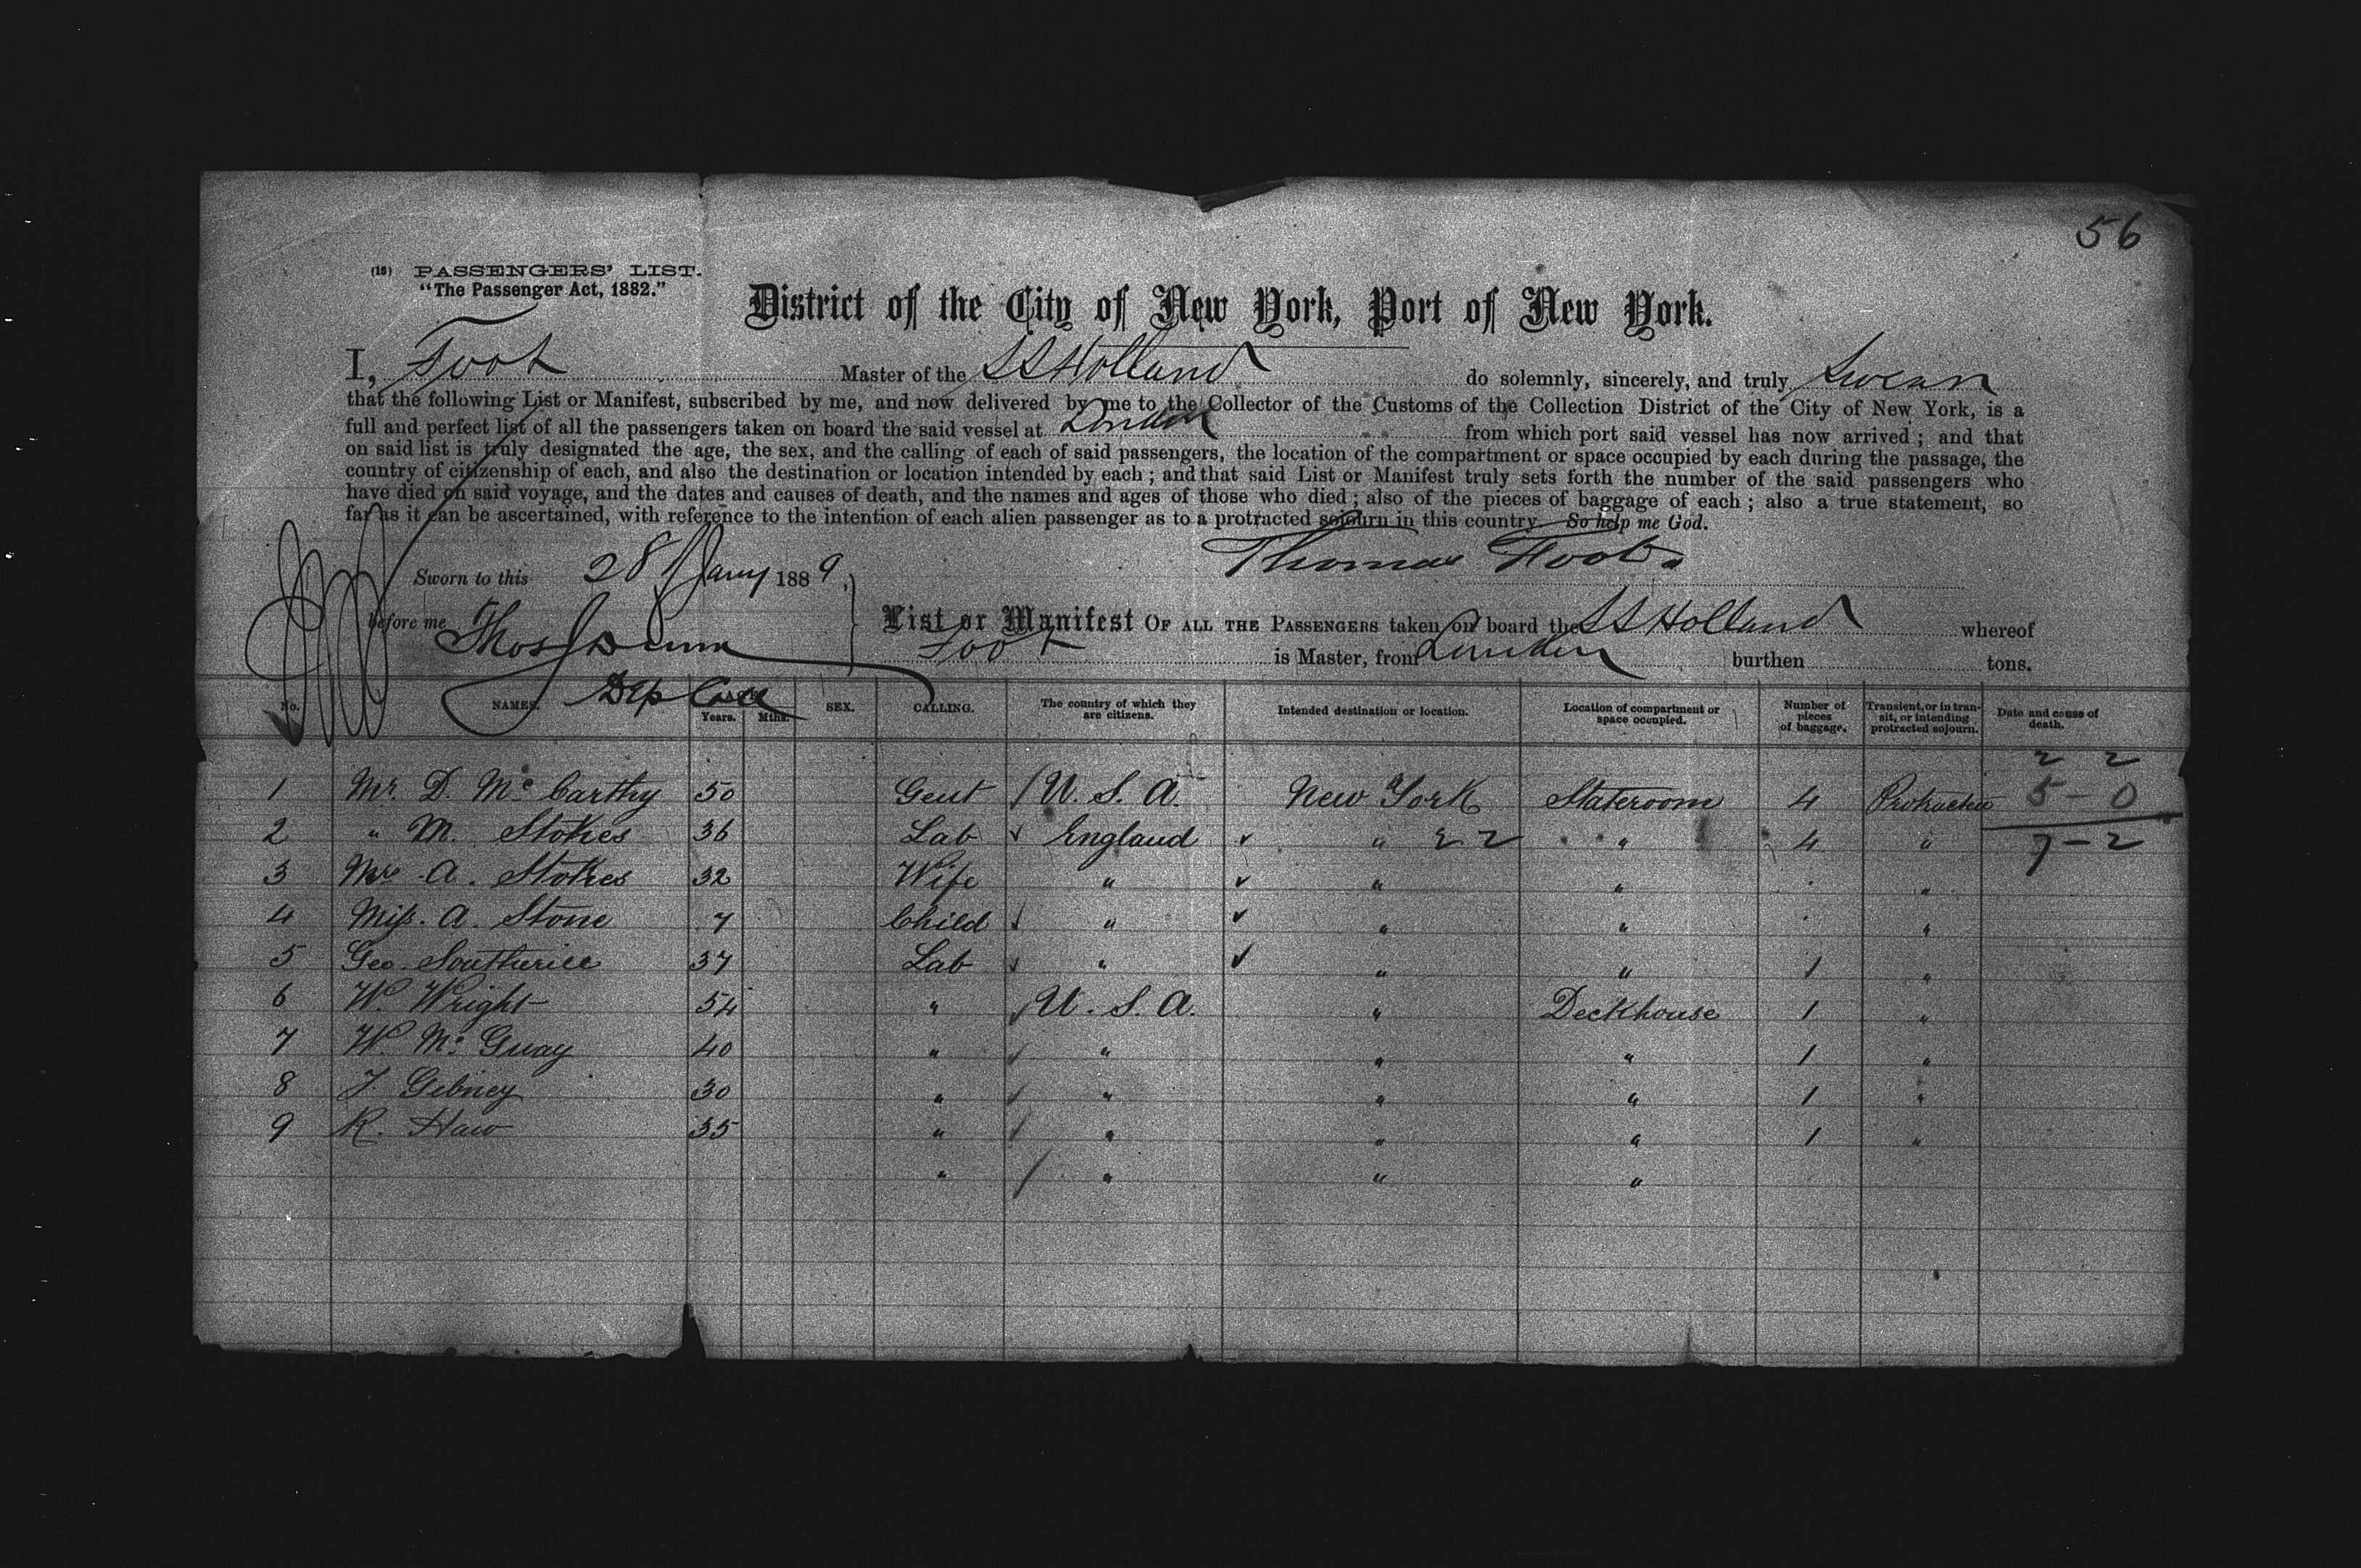 56
(18) PASSENGERS' LIST.
"The Passenger Act, 1882."
District of the City of New York, Port of New York.
I, Foot Master of the SS Holland do solemnly, sincerely, and truly Swear
that the following List or Manifest, subscribed by me, and now delivered by me to the Collector of the Customs of the Collection District of the City of New York, is a
full and perfect list of all the passengers taken on board the said vessel at London from which port said vessel has now arrived; and that
on said list is truly designated the age, the sex, and the calling of each of said passengers, the location of the compartment or space occupied by each during the passage, the
country of citizenship of each, and also the destination or location intended by each; and that said List or Manifest truly sets forth the number of the said passengers who
have died on said voyage, and the dates and causes of death, and the names and ages of those who died; also of the pieces of baggage of each; also a true statement, so
far as it can be ascertained, with reference to the intention of each alien passenger as to a protracted sojourn in this country. So help me God.
Sworn to this 28 Jany 1889, Thomas Foot
before me Thos
List or Manifest OF ALL THE PASSENGERS taken on board the SS Holland whereof
Foot is Master, from London burthen tons.
Dep Coll
No. NAMES. Years. Mths. SEX. CALLING. The country of which they are citizens. Intended destination or location. Location of compartment or space occupied. Number of pieces of baggage. Transient, or in transit, or intending protracted sojourn. Date and cause of death.
2 2
1 Mr. D. McCarthy 50 Gent U. S. A. New York Stateroom 4 Protracted 5 - 0
2 " M. Stokes 36 Lab England " 2 2 " 4 " 7 - 2
3 Mrs A. Stokes 32 Wife " " " "
4 Miss. A. Stone 7 Child " " " "
5 Geo. 37 Lab " " " 1 "
6 W. Wright 54 " U. S. A. " Deckhouse 1 "
7 W. Mc Guay 40 " " " " 1 "
8 J. Gebney 30 " " " " 1 "
9 R. Haw 35 " " " " 1 "
" " " "